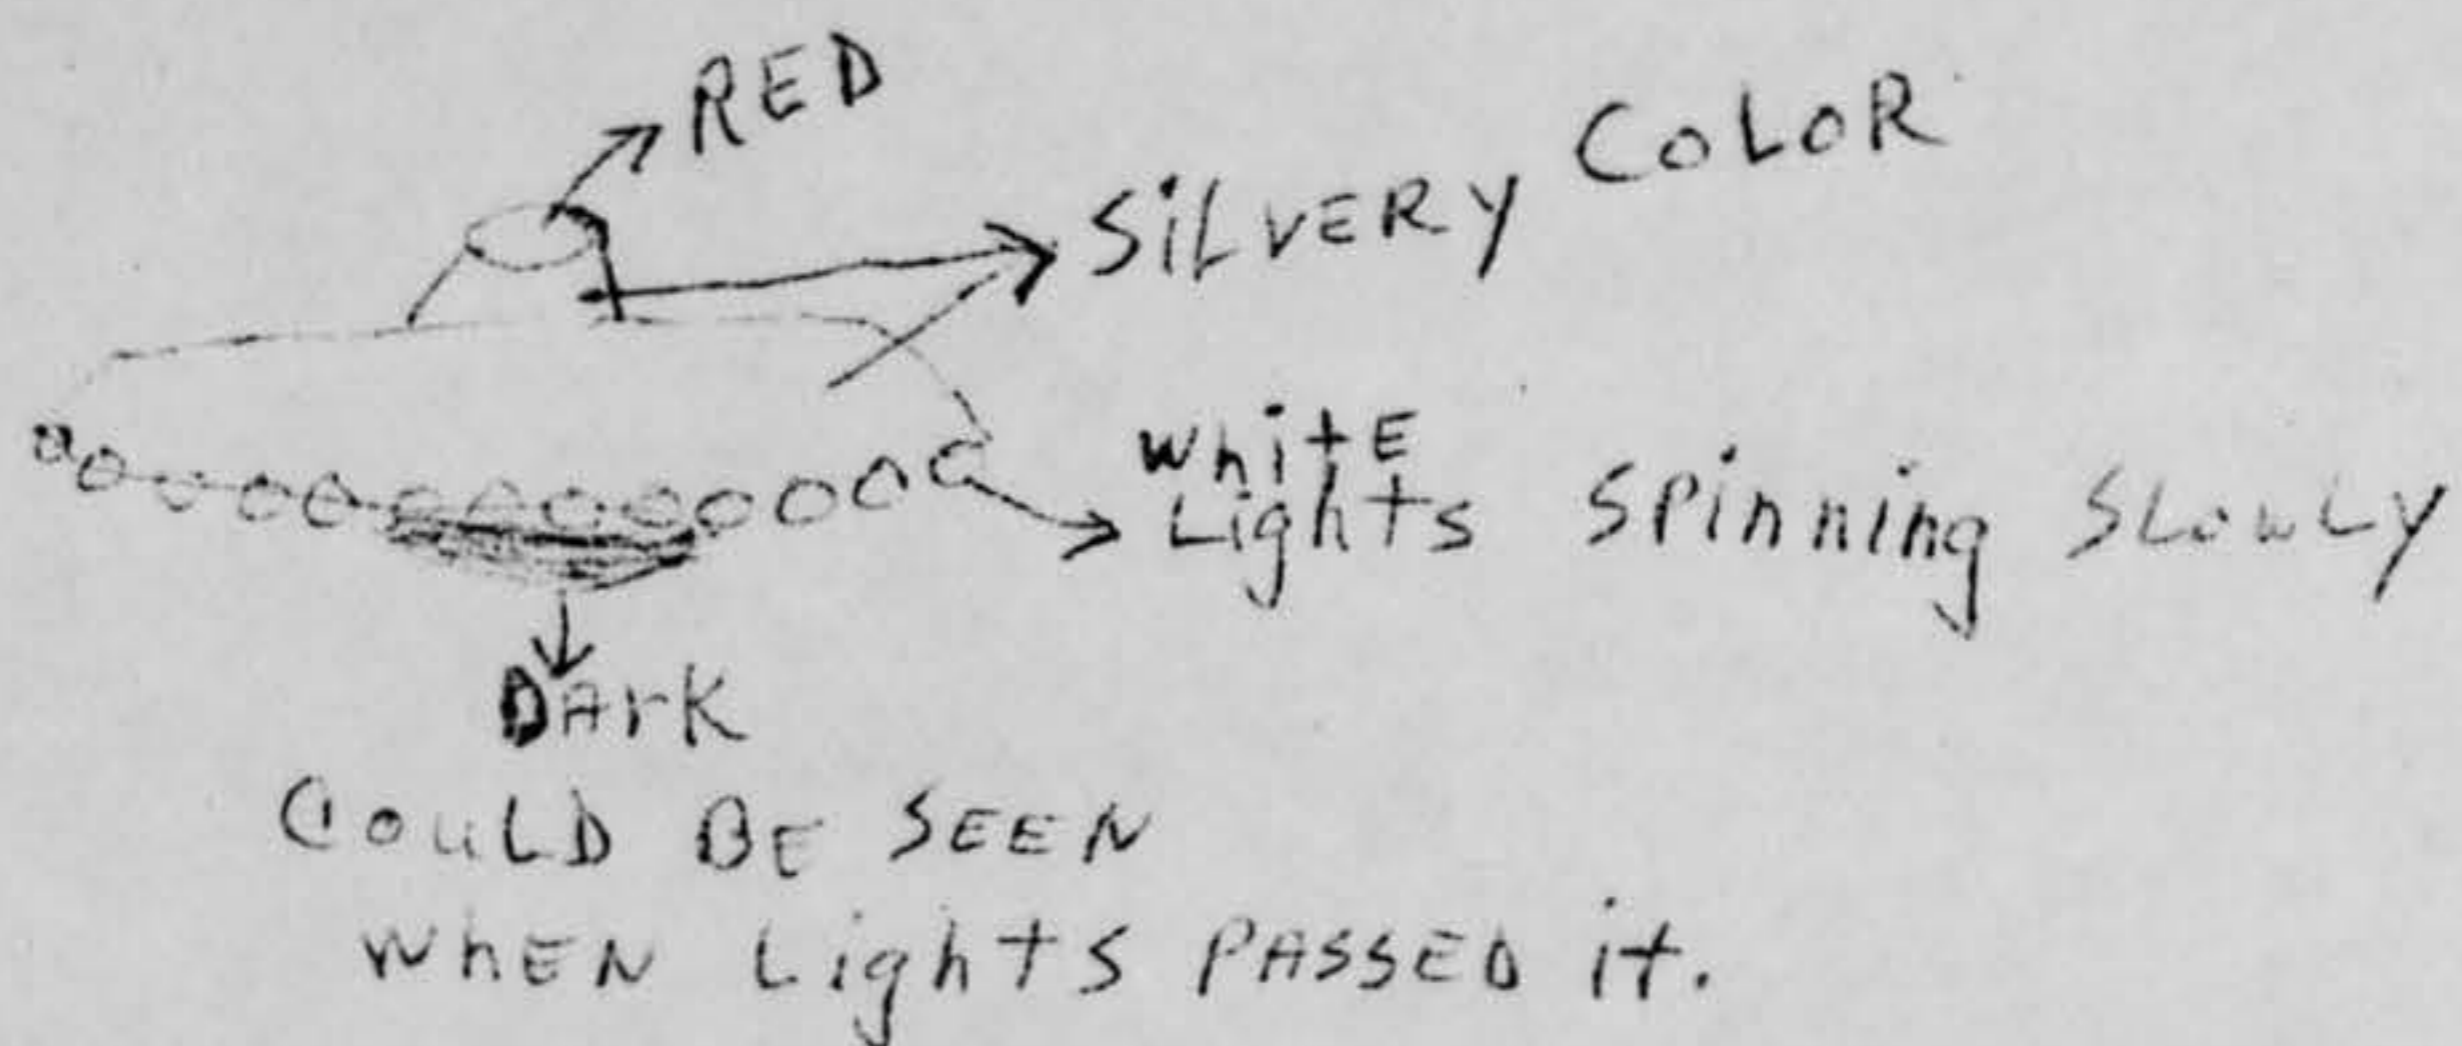 RED
SiLVERY COLOR
WhitE
Lights SPinning SLowLy
DArK
COULD BE SEEN
WhEN Lights PASSED it.